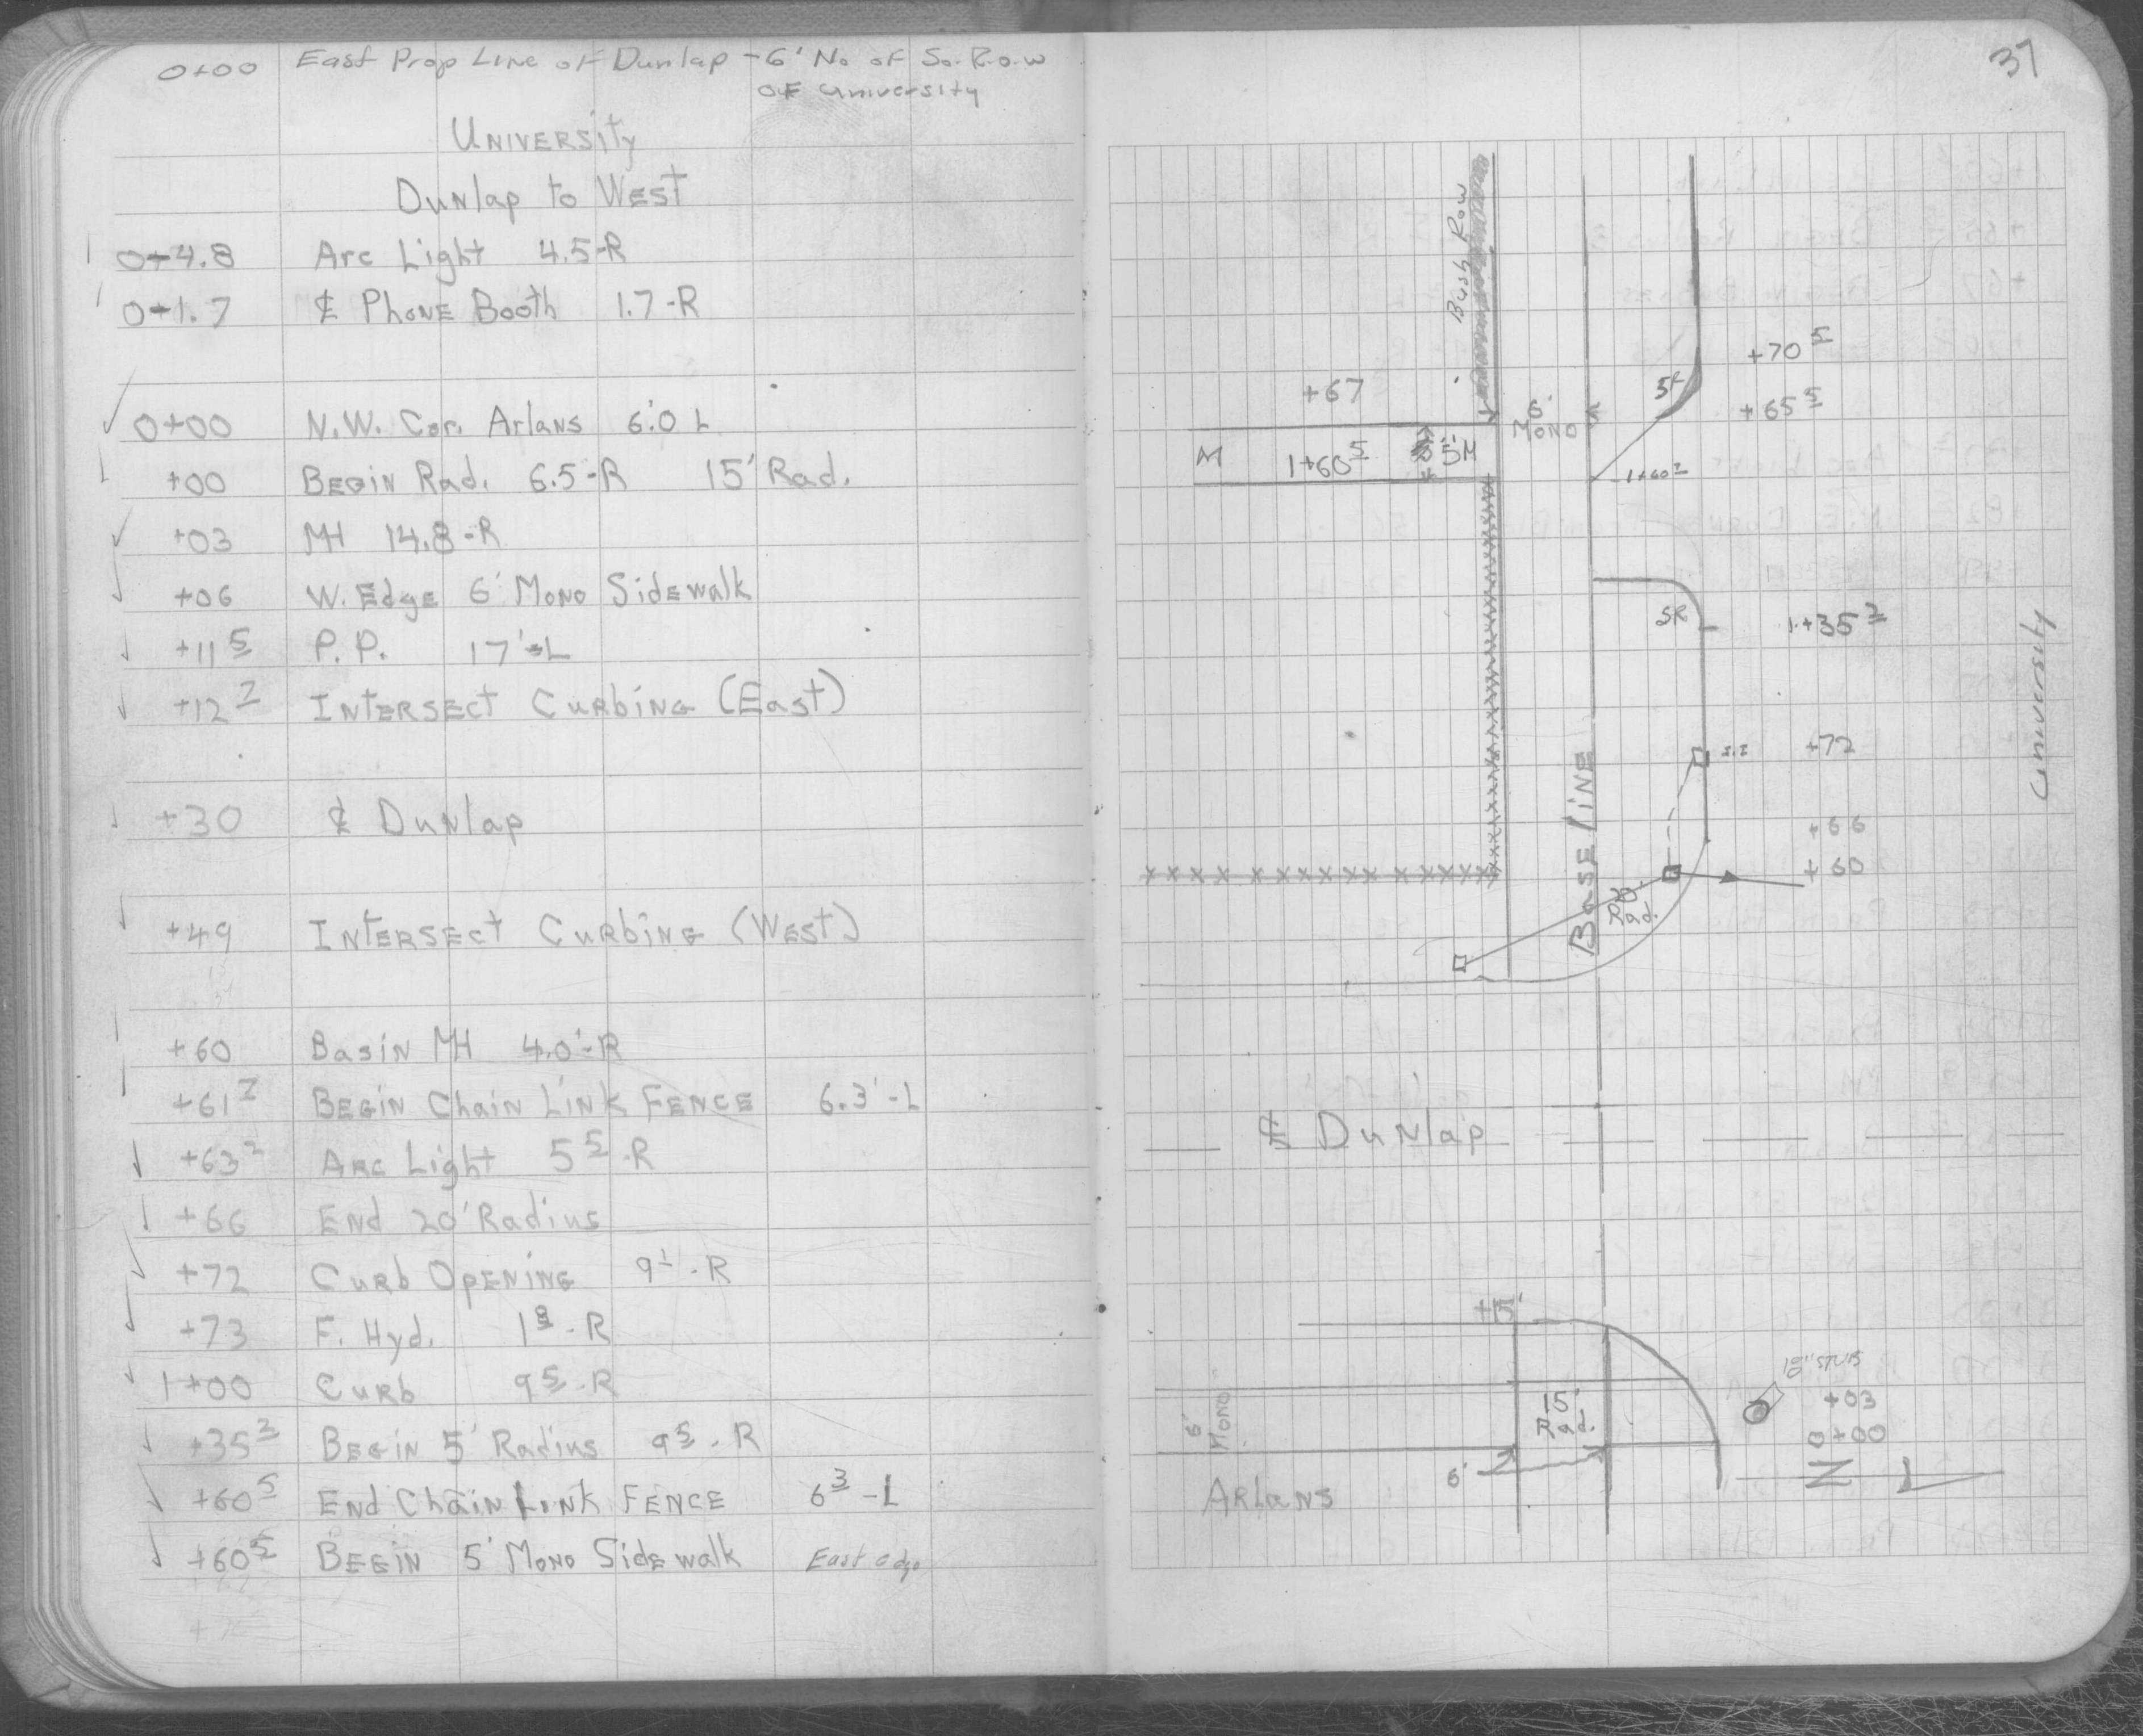 0+00 East Prop Line of Dunlap - 6' No of So. R.o.w
of University
University
Dunlap to West
0-4.8 Arc Light 4.5-R
0-1.7 ₵ Phone Booth 1.7-R
0+00 N.W. Cor. Arlans 6.0' L
+00 Begin Rad. 6.5-R 15' Rad.
+03 MH 14.8-R
+06 W. Edge 6' Mono Sidewalk
+11 5 P.P. 17'-L
+12 2 Intersect Curbing (East)
+30 ₵ Dunlap
+49 Intersect Curbing (West)
+60 Basin MH 4.0'-R
+61 2 Begin Chain Link Fence 6.3'-L
+63 2 Arc Light 5 5-R
+66 End 20' Radius
+72 Curb Opening 9 1-R
+73 F. Hyd. 1 8-R
1+00 Curb 9 5-R
+35 3 Begin 5' Radius 9 5-R
+60 5 End Chain Link Fence 6 3-L
+60 5 Begin 5' Mono Sidewalk East edge
37
Bush Row
+70 5
5R
+67
+65 5
6'
Mono
M 1+60 5 5' M
1+60 2
5R
1+35 3
University
+72
Base Line
+66
+60
20'
Rad.
₵ Dunlap
+15'
18" STUB
6'
Mono
15'
Rad.
+03
0+00
6'
N
Arlans